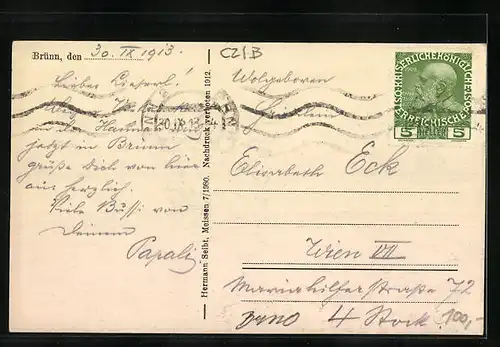 Brünn, den 30 IX 1913.
Lieber Lieserl!
in der
jetzt in Brünn
grüße dich von hier
aus herzlich.
Viele Bussi von
Deinem
Papali
Hermann Seibt, Meissen 7/1980. Nachdruck verboten 1912.
CZ/B
Wolgeboren
Fräulein
Elisabeth Eck
Wien VII
Mariahilferstraße 72
4 Stock.
brno
100,-
KAISERLICHE KÖNIGLICHE
ÖSTERREICHISCHE POST
5 HELLER 5